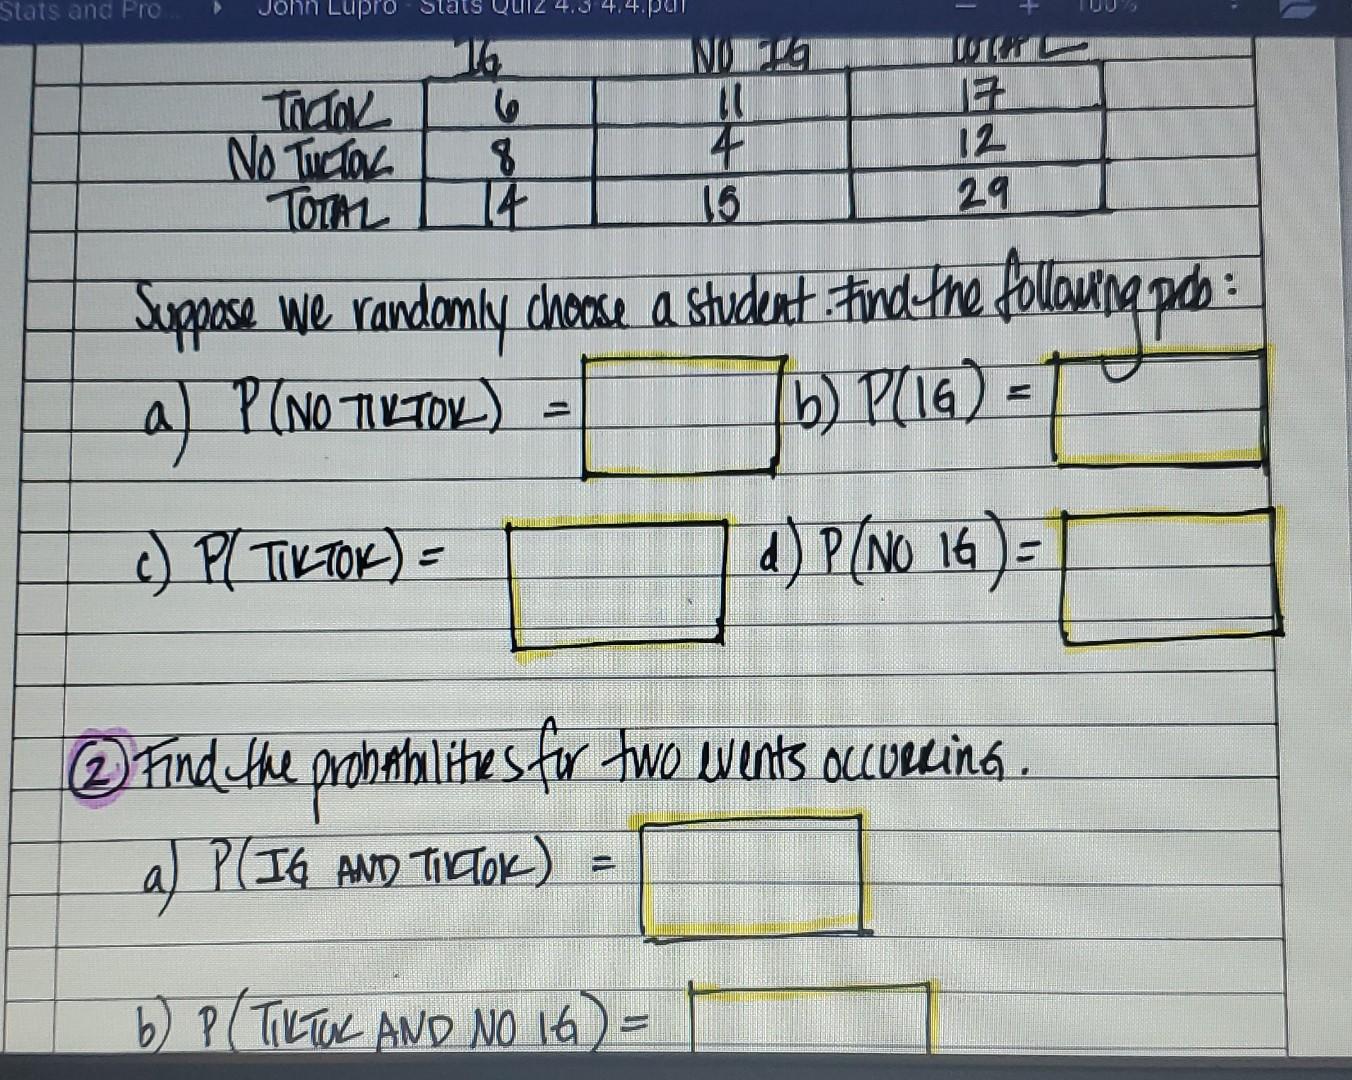 Stats and Pro... John Lupro - Stats Quiz 4.3-4.4.pdf - + 100%
IG NO IG TOTAL
TIKTOK 6 11 17
NO TIKTOK 8 4 12
TOTAL 14 15 29
Suppose we randomly choose a student. Find the following prob:
a) P(NO TIKTOK) = b) P(IG) =
c) P(TIKTOK) = d) P(NO IG) =
2 Find the probabilities for two events occurring.
a) P(IG AND TIKTOK) =
b) P(TIKTOK AND NO IG) =